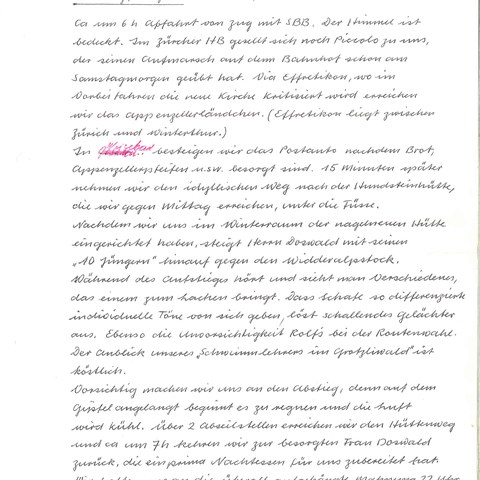 Ca um 6 h Abfahrt von Zug mit SBB. Der Himmel ist
bedeckt. Im Zürcher HB gesellt sich noch Piccolo zu uns,
der seinen Aufmarsch auf dem Bahnhof schon am
Samstagmorgen geübt hat. Via Effretikon, wo im
Vorbeifahren die neue Kirche kritisiert wird erreichen
wir das Appenzellerländchen. (Effretikon liegt zwischen
Zürich und Winterthur.)
In besteigen wir das Postauto nachdem Brot,
Appenzellerpfeifen u.s.w. besorgt sind. 15 Minuten später
nehmen wir den idyllischen Weg nach der Hundsteinhütte,
die wir gegen Mittag erreichen, unter die Füsse.
Nachdem wir uns im Winterraum der nagelneuen Hütte
eingerichtet haben, steigt Herrn Doswald mit seinen
„10 Jüngern" hinauf gegen den Widderalpstock.
Während des Aufstieges hört und sieht man Verschiedenes,
das einem zum Lachen bringt. Dass Schafe so differenzierte
individuelle Töne von sich geben, löst schallendes Gelächter
aus. Ebenso die Unvorsichtigkeit Rolf's bei der Routenwahl.
Der Anblick unseres „Schwimmlehrers im Grotzliwald" ist
köstlich.
Vorsichtig machen wir uns an den Abstieg, denn auf dem
Gipfel angelangt beginnt es zu regnen und die Luft
wird kühl. Über 2 Abseilstellen erreichen wir den Hüttenweg
und ca um 7 h kehren wir zur besorgten Frau Doswald
zurück, die ein prima Nachtessen für uns zubereitet hat.